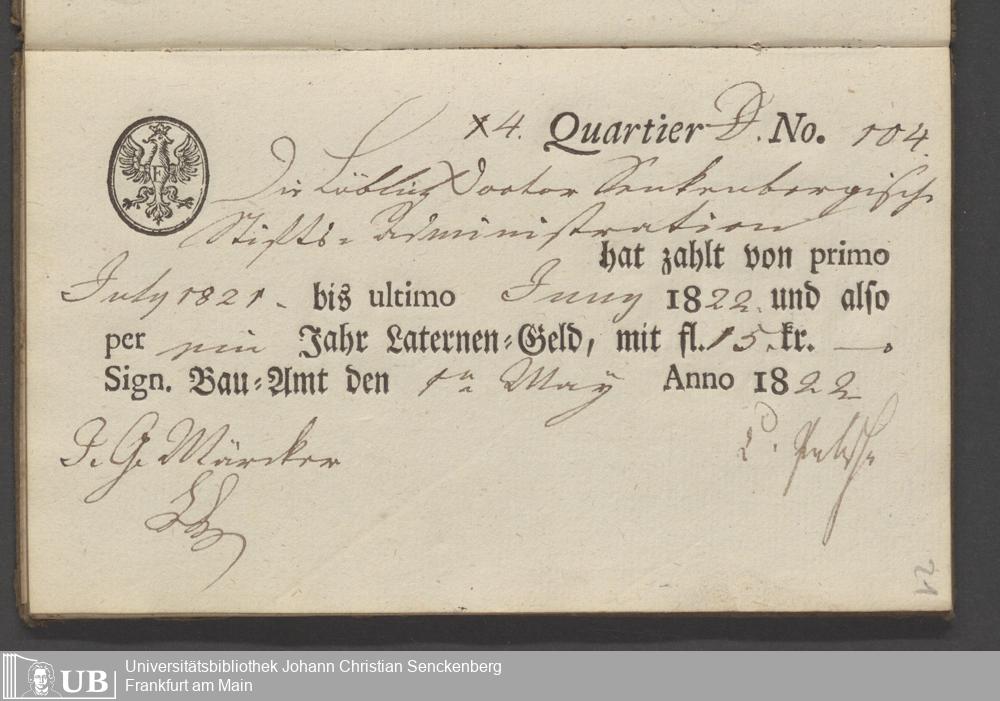 x 4. Quartier D. No. 104.
F
Die Löbliche Doctor Senkenbergische
Stifts-Administration
hat zahlt von primo
July 1821. bis ultimo Juny 1822. und also
per ein Jahr Laternen-Geld, mit fl. 15. kr. —.
Sign. Bau-Amt den 1n May Anno 1822
J. G. Märcker
21
Universitätsbibliothek Johann Christian Senckenberg
UB Frankfurt am Main